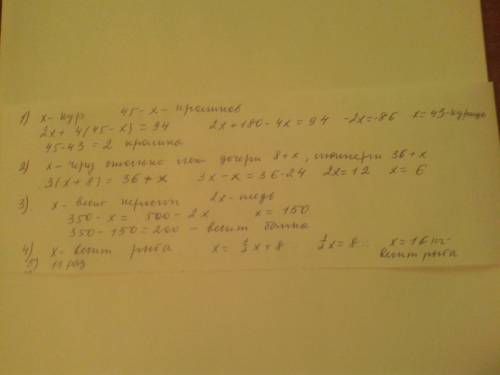 1) x - кур 45 - x - кроликов
2x + 4(45 - x) = 94 2x + 180 - 4x = 94 -2x = -86 x = 43 - курица
45 - 43 = 2 кролика
2) x - через столько лет дочери 8 + x, матери 36 + x
3(x + 8) = 36 + x 3x - x = 36 - 24 2x = 12 x = 6
3) x - весит керосин 2x - медь
350 - x = 500 - 2x x = 150
350 - 150 = 200 - весит банка
4) x - весит рыба x = ½x + 8 ½x = 8 x = 16 кг - весит рыба
5) 11 раз